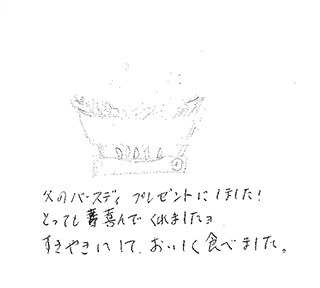 父のバースディ プレゼントにしました!
とっても喜んでくれましたョ
すきやきにして、おいしく食べました。